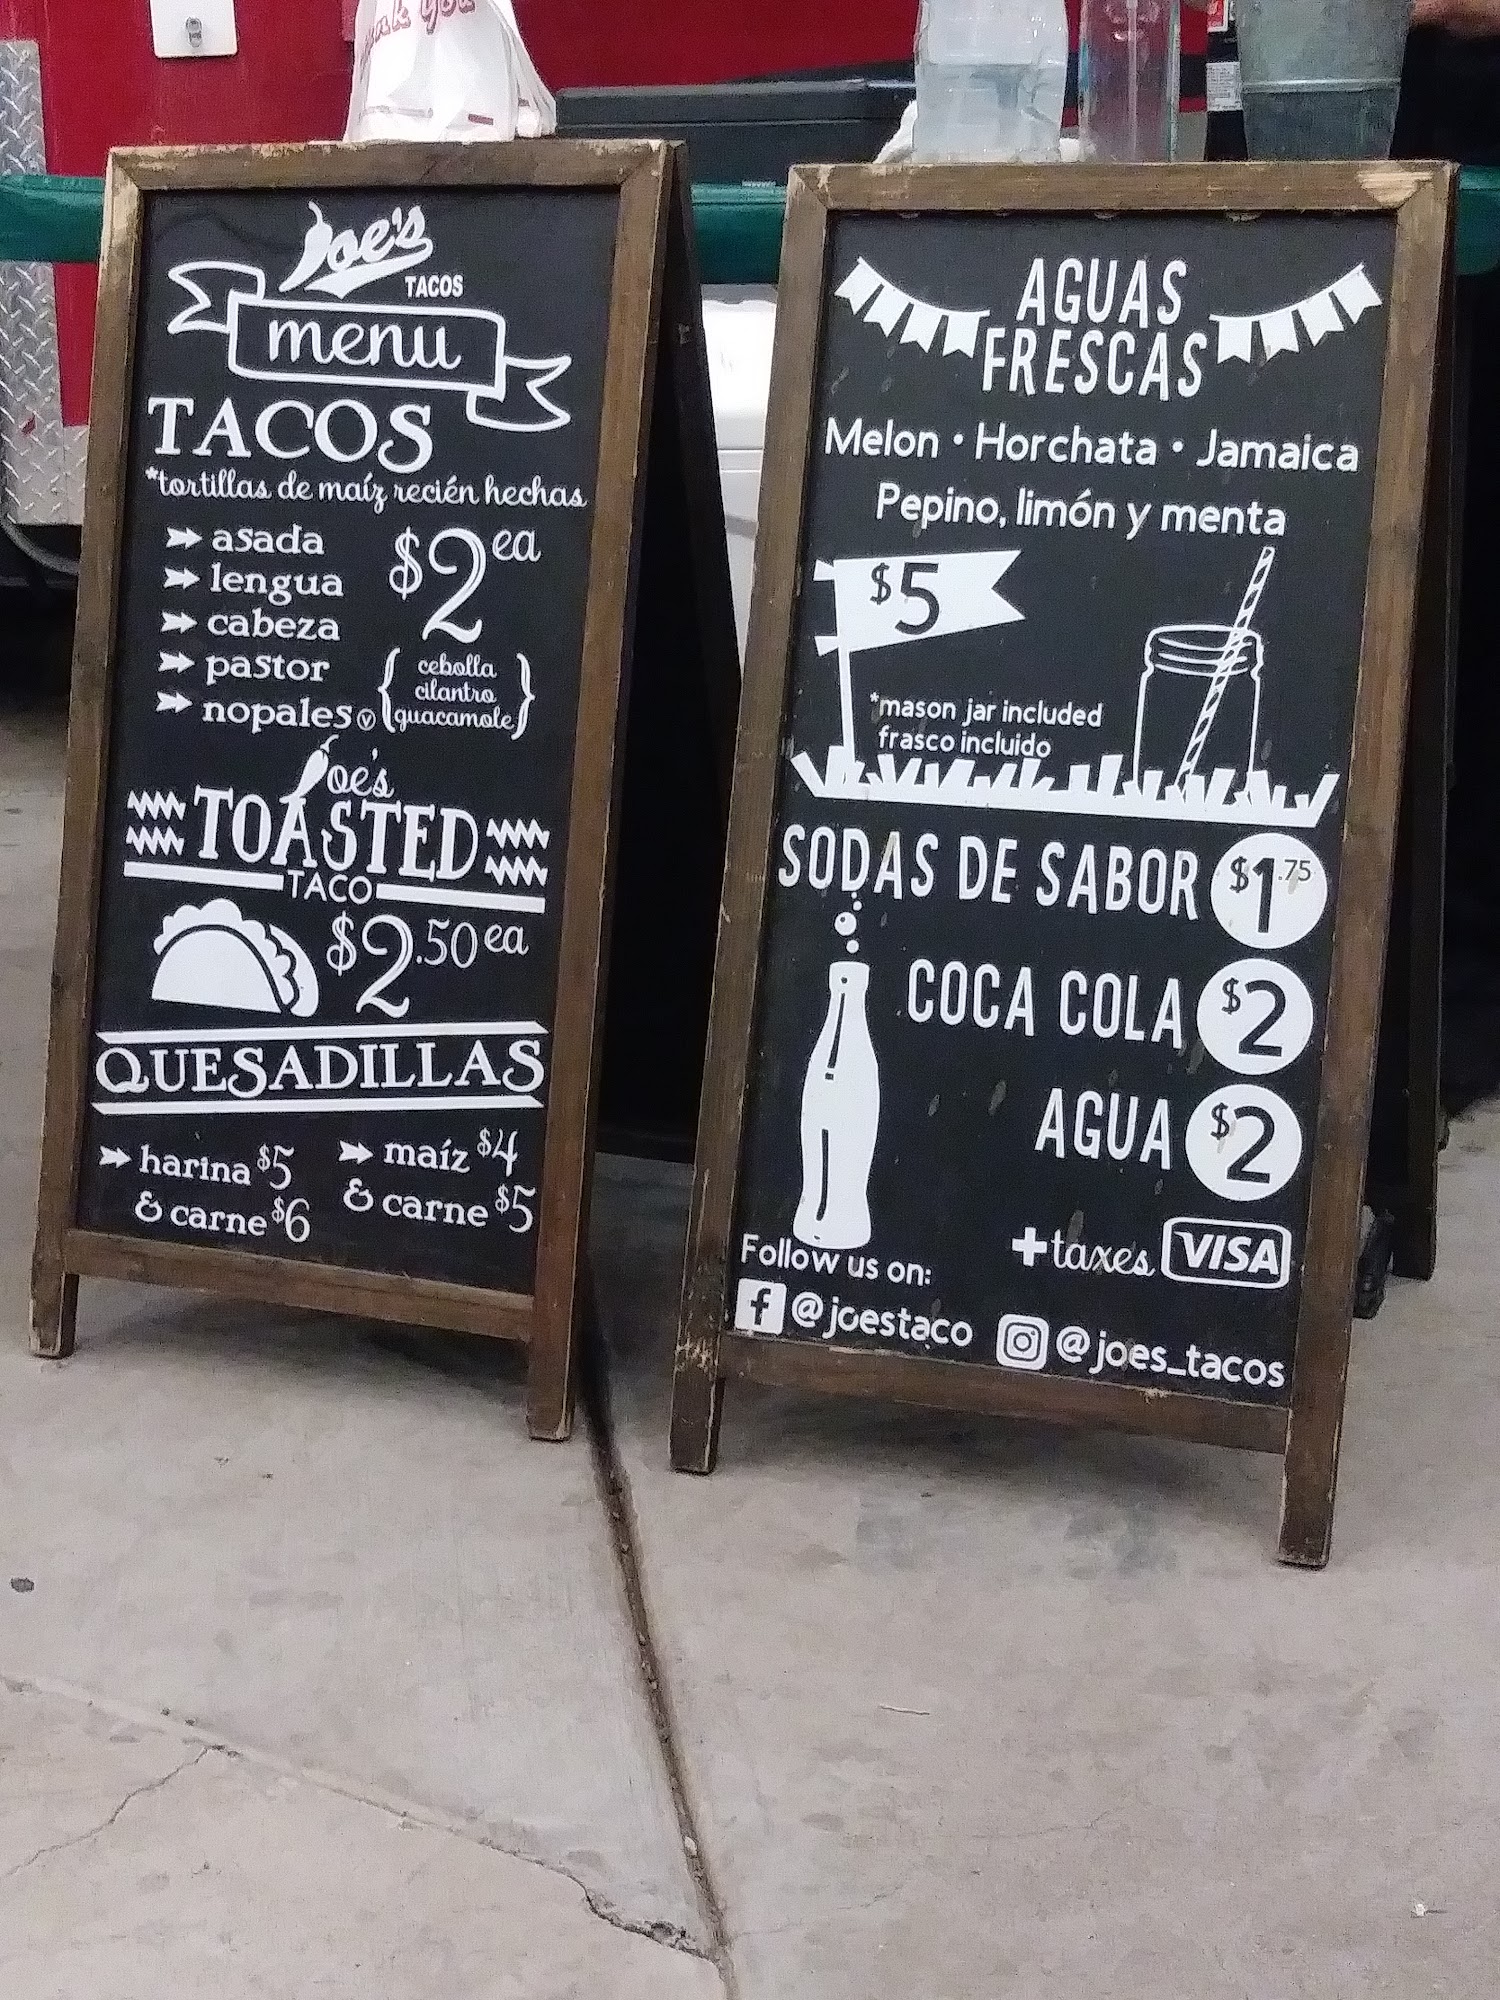 Thank You
Joe's
TACOS
menu
TACOS
*tortillas de maíz recién hechas
asada
lengua
cabeza
pastor
nopales v
$2 ea
{cebolla
cilantro
guacamole}
Joe's
TOASTED
TACO
$2.50 ea
QUESADILLAS
harina $5
& carne $6
maíz $4
& carne $5
AGUAS
FRESCAS
Melon • Horchata • Jamaica
Pepino, limón y menta
$5
*mason jar included
frasco incluido
SODAS DE SABOR $1.75
COCA COLA $2
AGUA $2
+taxes VISA
Follow us on:
f @joestaco
@joes_tacos